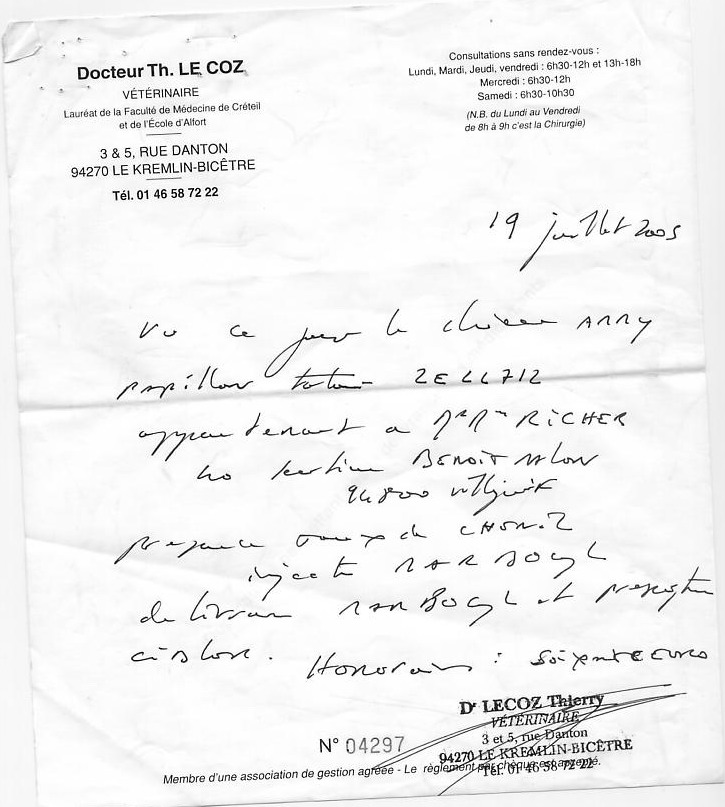 Docteur Th. LE COZ
VÉTÉRINAIRE
Lauréat de la Faculté de Médecine de Créteil
et de l'École d'Alfort
3 & 5, RUE DANTON
94270 LE KREMLIN-BICÊTRE
Tél. 01 46 58 72 22
Consultations sans rendez-vous :
Lundi, Mardi, Jeudi, vendredi : 6h30-12h et 13h-18h
Mercredi : 6h30-12h
Samedi : 6h30-10h30
(N.B. du Lundi au Vendredi
de 8h à 9h c'est la Chirurgie)
19 juillet 2005
Vu ce jour le chien
papillon
appartenant a RICHER
BENOIT MALON
94800 villejuif
injecte MARBOCYL
MARBOCYL et
Honoraires : soixante EUROS
Dr LECOZ Thierry
VÉTÉRINAIRE
3 et 5, rue Danton
94270 LE KREMLIN-BICÊTRE
Tél. 01 46 58 72 22
N° 04297
Membre d'une association de gestion agréée - Le règlement par chèque est accepté.